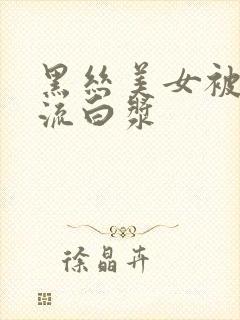 黑丝美女被
流白漿
徐晶卉